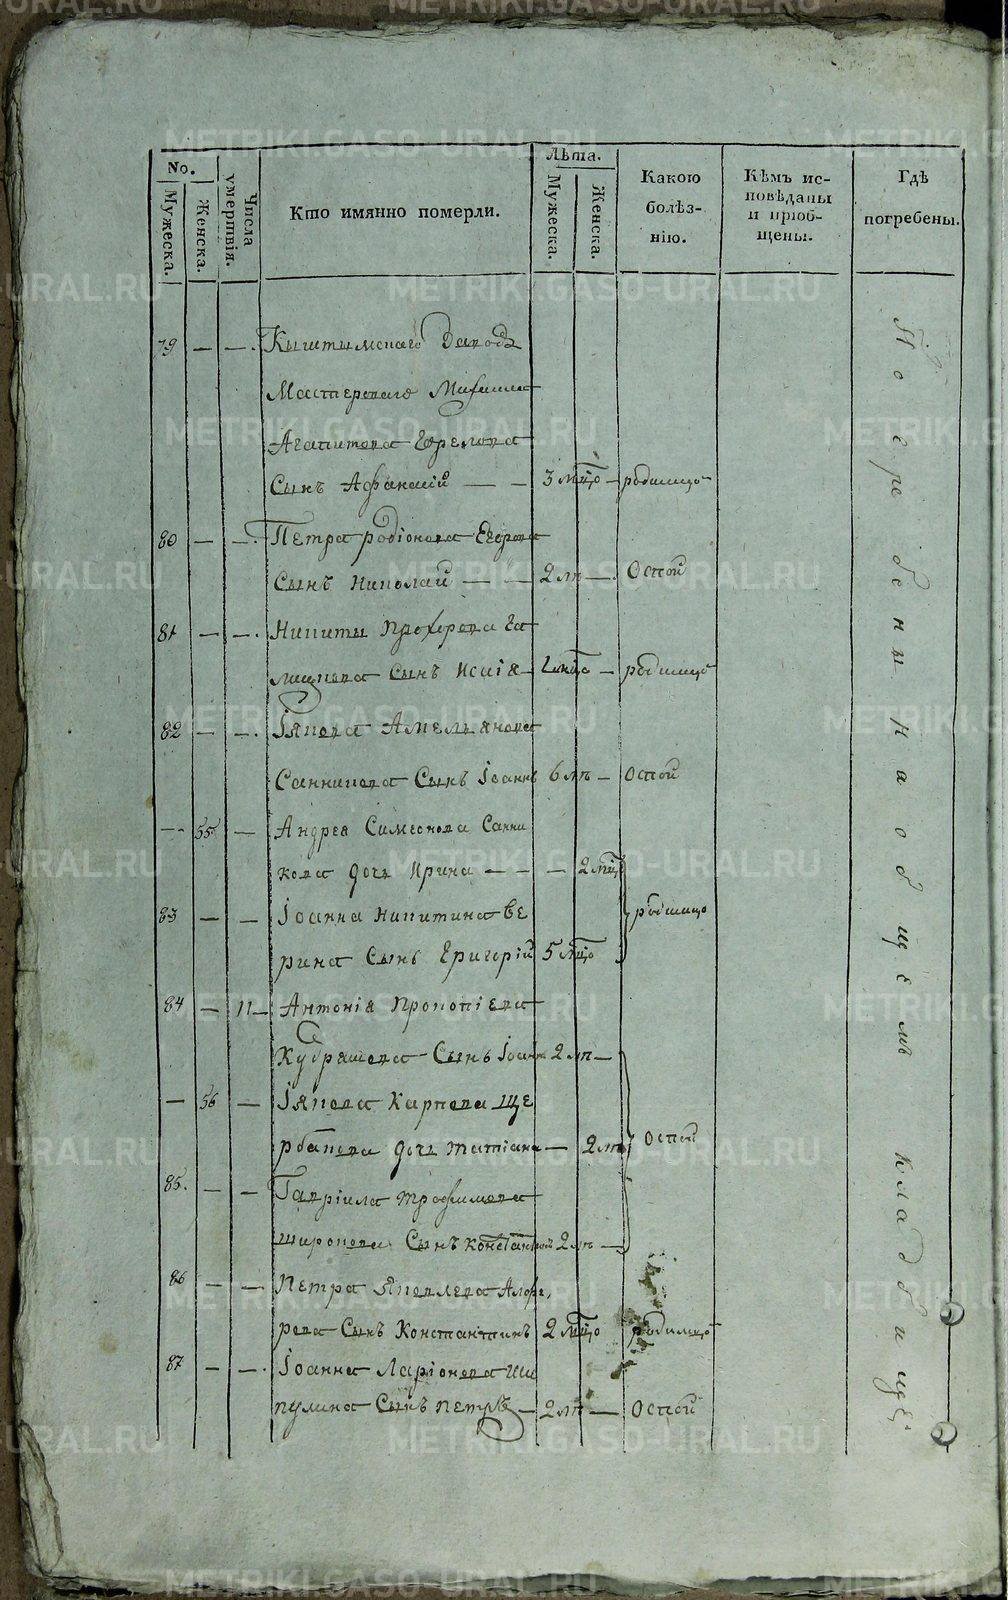 No.
Мужеска.
Женска.
Числа умертвія.
Кто имянно померли.
Лѣта.
Мужеска.
Женска.
Какою болѣз-
нію.
Кѣмъ ис-
повѣданы
и пріоб-
щены.
Гдѣ
погребены.
79 — — Кыштымскаго Завода
Мастероваго Михаила
Агапитова Ефремова
Сынъ Афанасій — — 3 мцо — родимцо
80 — — Петра Родіонова Егорова
Сынъ Николай — — 2 лѣ — Оспой
81 — — Никиты Прохорова Га
Сынъ Исаія — мцо — родимцо
82 — — Іякова Амельянова
Санникова Сынъ Іоаннъ 6 лѣ — Оспой
— 55 — Андрея Симеонова Санни
кова дочь Ирина — — — 2 мцо
83 — — Іоанна Никитина Ве
рина Сынъ Григорій 5 мцо
родимцо
84 — 11 — Антонія Прокопіева
Кудряшова Сынъ Іоаннъ 2 лѣ —
— 56 — Іякова Карпова Ще
рбакова дочь Татіана — 2 лѣ
Оспой
85. — — Гавріила Трофимова
Широкова Сынъ Константинъ 2 лѣ —
86 — — Петра Яковлева
рева Сынъ Константинъ 2 мцо родимцо
87 — — Іоанна Ларіонова Ши
пулина Сынъ Петръ — 2 лѣ — Оспой
Погребены на общемъ кладбищѣ
METRIKI.GASO-URAL.RU